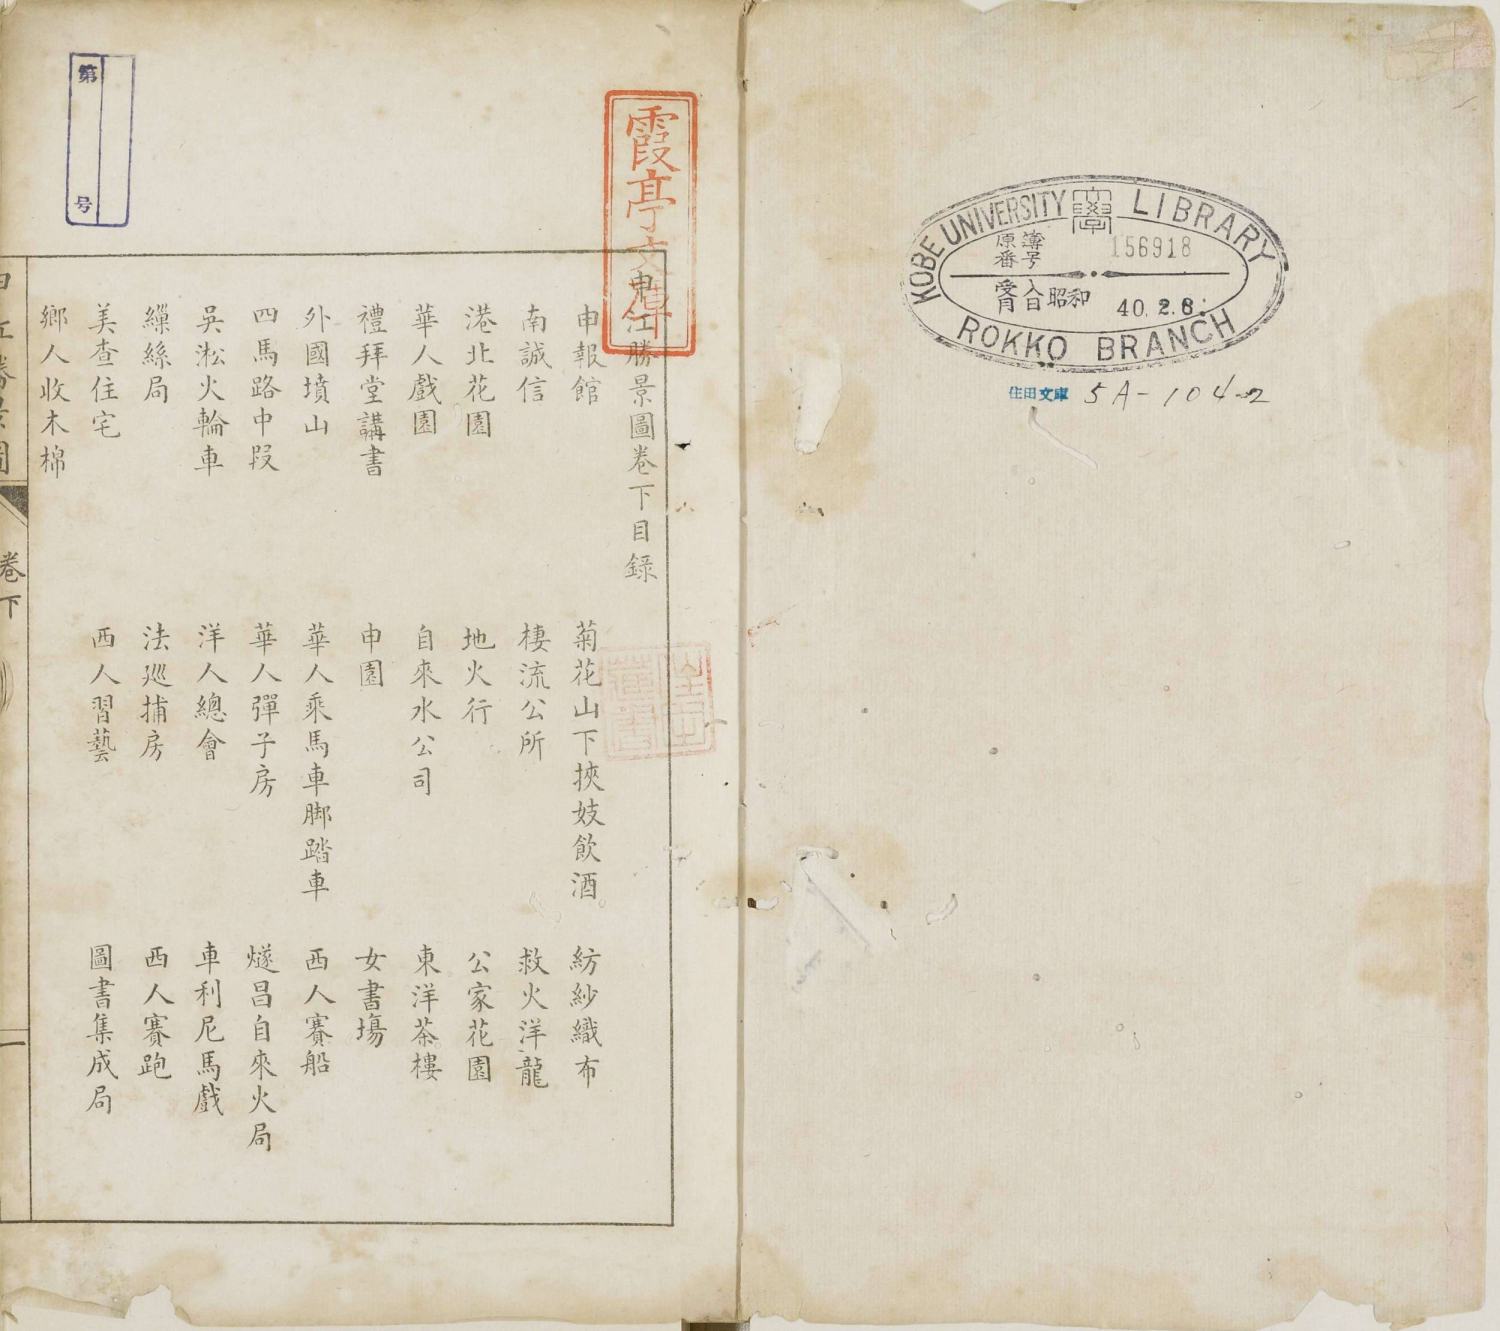 KOBE UNIVERSITY LIBRARY
原簿
番号
156918
受入
月日
昭和
40.2.6
ROKKO BRANCH
住田文庫
5A-104-2
霞亭文庫
申江勝景圖卷下目錄
申報館 菊花山下挾妓飲酒 紡紗織布
南誠信 棲流公所 救火洋龍
港北花園 地火行 公家花園
華人戲園 自來水公司 東洋茶樓
禮拜堂講書 申園 女書塲
外國墳山 華人乘馬車脚踏車 西人賽船
四馬路中段 華人彈子房 燧昌自來火局
吳淞火輪車 洋人總會 車利尼馬戲
繅絲局 法巡捕房 西人賽跑
美查住宅 西人習藝 圖書集成局
鄉人收木棉
申江勝景圖 卷下 一
第 号